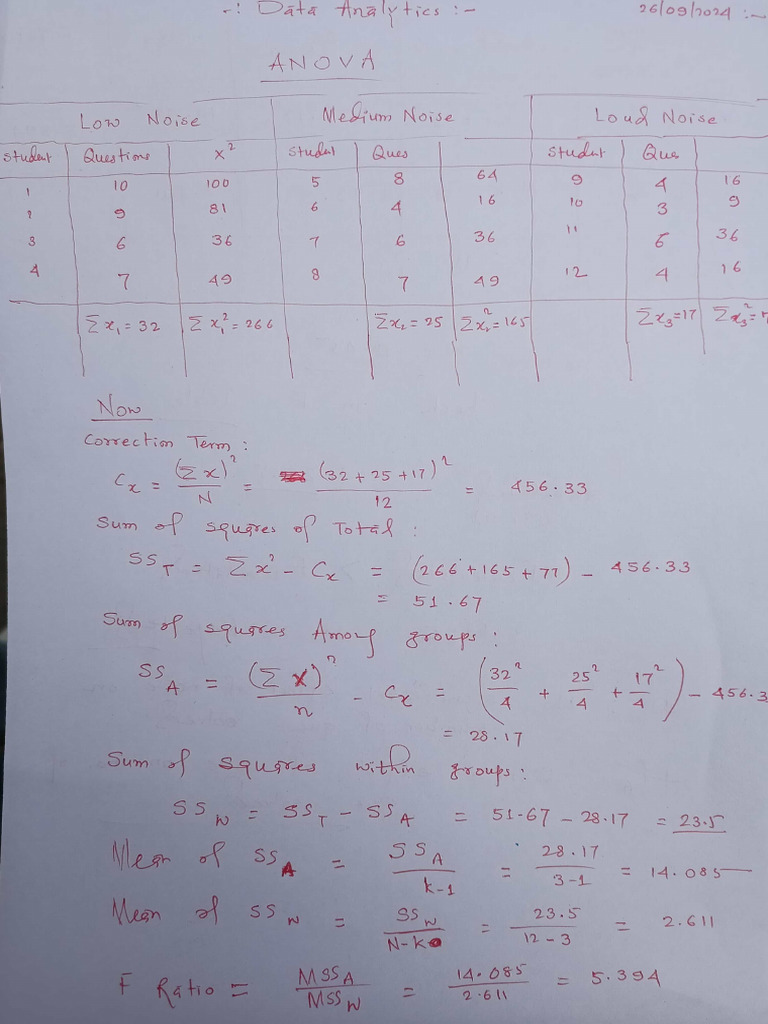 -: Data Analytics :- 26/09/2024 :-
ANOVA
Low Noise Medium Noise Loud Noise
Student Questions x² Student Ques Student Ques
1 10 100 5 8 64 9 4 16
2 9 81 6 4 16 10 3 9
3 6 36 7 6 36 11 6 36
4 7 49 8 7 49 12 4 16
Σx₁ = 32 Σx₁² = 266 Σx₂ = 25 Σx₂² = 165 Σx₃=17 Σx₃² =
Now
Correction Term :
Cx = (Σx)²/N = (32 + 25 + 17)²/12 = 456.33
Sum of squares of Total :
SS_T = Σx² - Cx = (266 + 165 + 77) - 456.33
= 51.67
Sum of squares Among groups :
SS_A = (Σx)²/n - Cx = (32²/4 + 25²/4 + 17²/4) - 456.3
= 28.17
Sum of squares within groups :
SS_W = SS_T - SS_A = 51.67 - 28.17 = 23.5
Mean of SS_A = SS_A/k-1 = 28.17/3-1 = 14.085
Mean of SS_W = SS_W/N-k = 23.5/12-3 = 2.611
F Ratio = MSS_A/MSS_W = 14.085/2.611 = 5.394